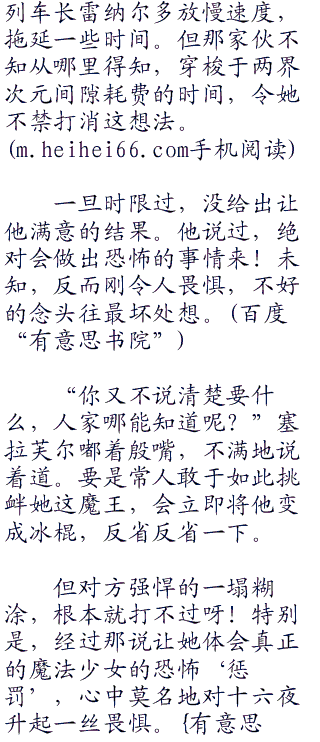 列车长雷纳尔多放慢速度，
拖延一些时间。但那家伙不
知从哪里得知，穿梭于两界
次元间隙耗费的时间，令她
不禁打消这想法。
(m.heihei66.com手机阅读)
一旦时限过，没给出让
他满意的结果。他说过，绝
对会做出恐怖的事情来！未
知，反而刚令人畏惧，不好
的念头往最坏处想。(百度
“有意思书院”)
“你又不说清楚要什
么，人家哪能知道呢？”塞
拉芙尔嘟着殷嘴，不满地说
着道。要是常人敢于如此挑
衅她这魔王，会立即将他变
成冰棍，反省反省一下。
但对方强悍的一塌糊
涂，根本就打不过呀！特别
是，经过那说让她体会真正
的魔法少女的恐怖‘惩
罚’，心中莫名地对十六夜
升起一丝畏惧。{有意思